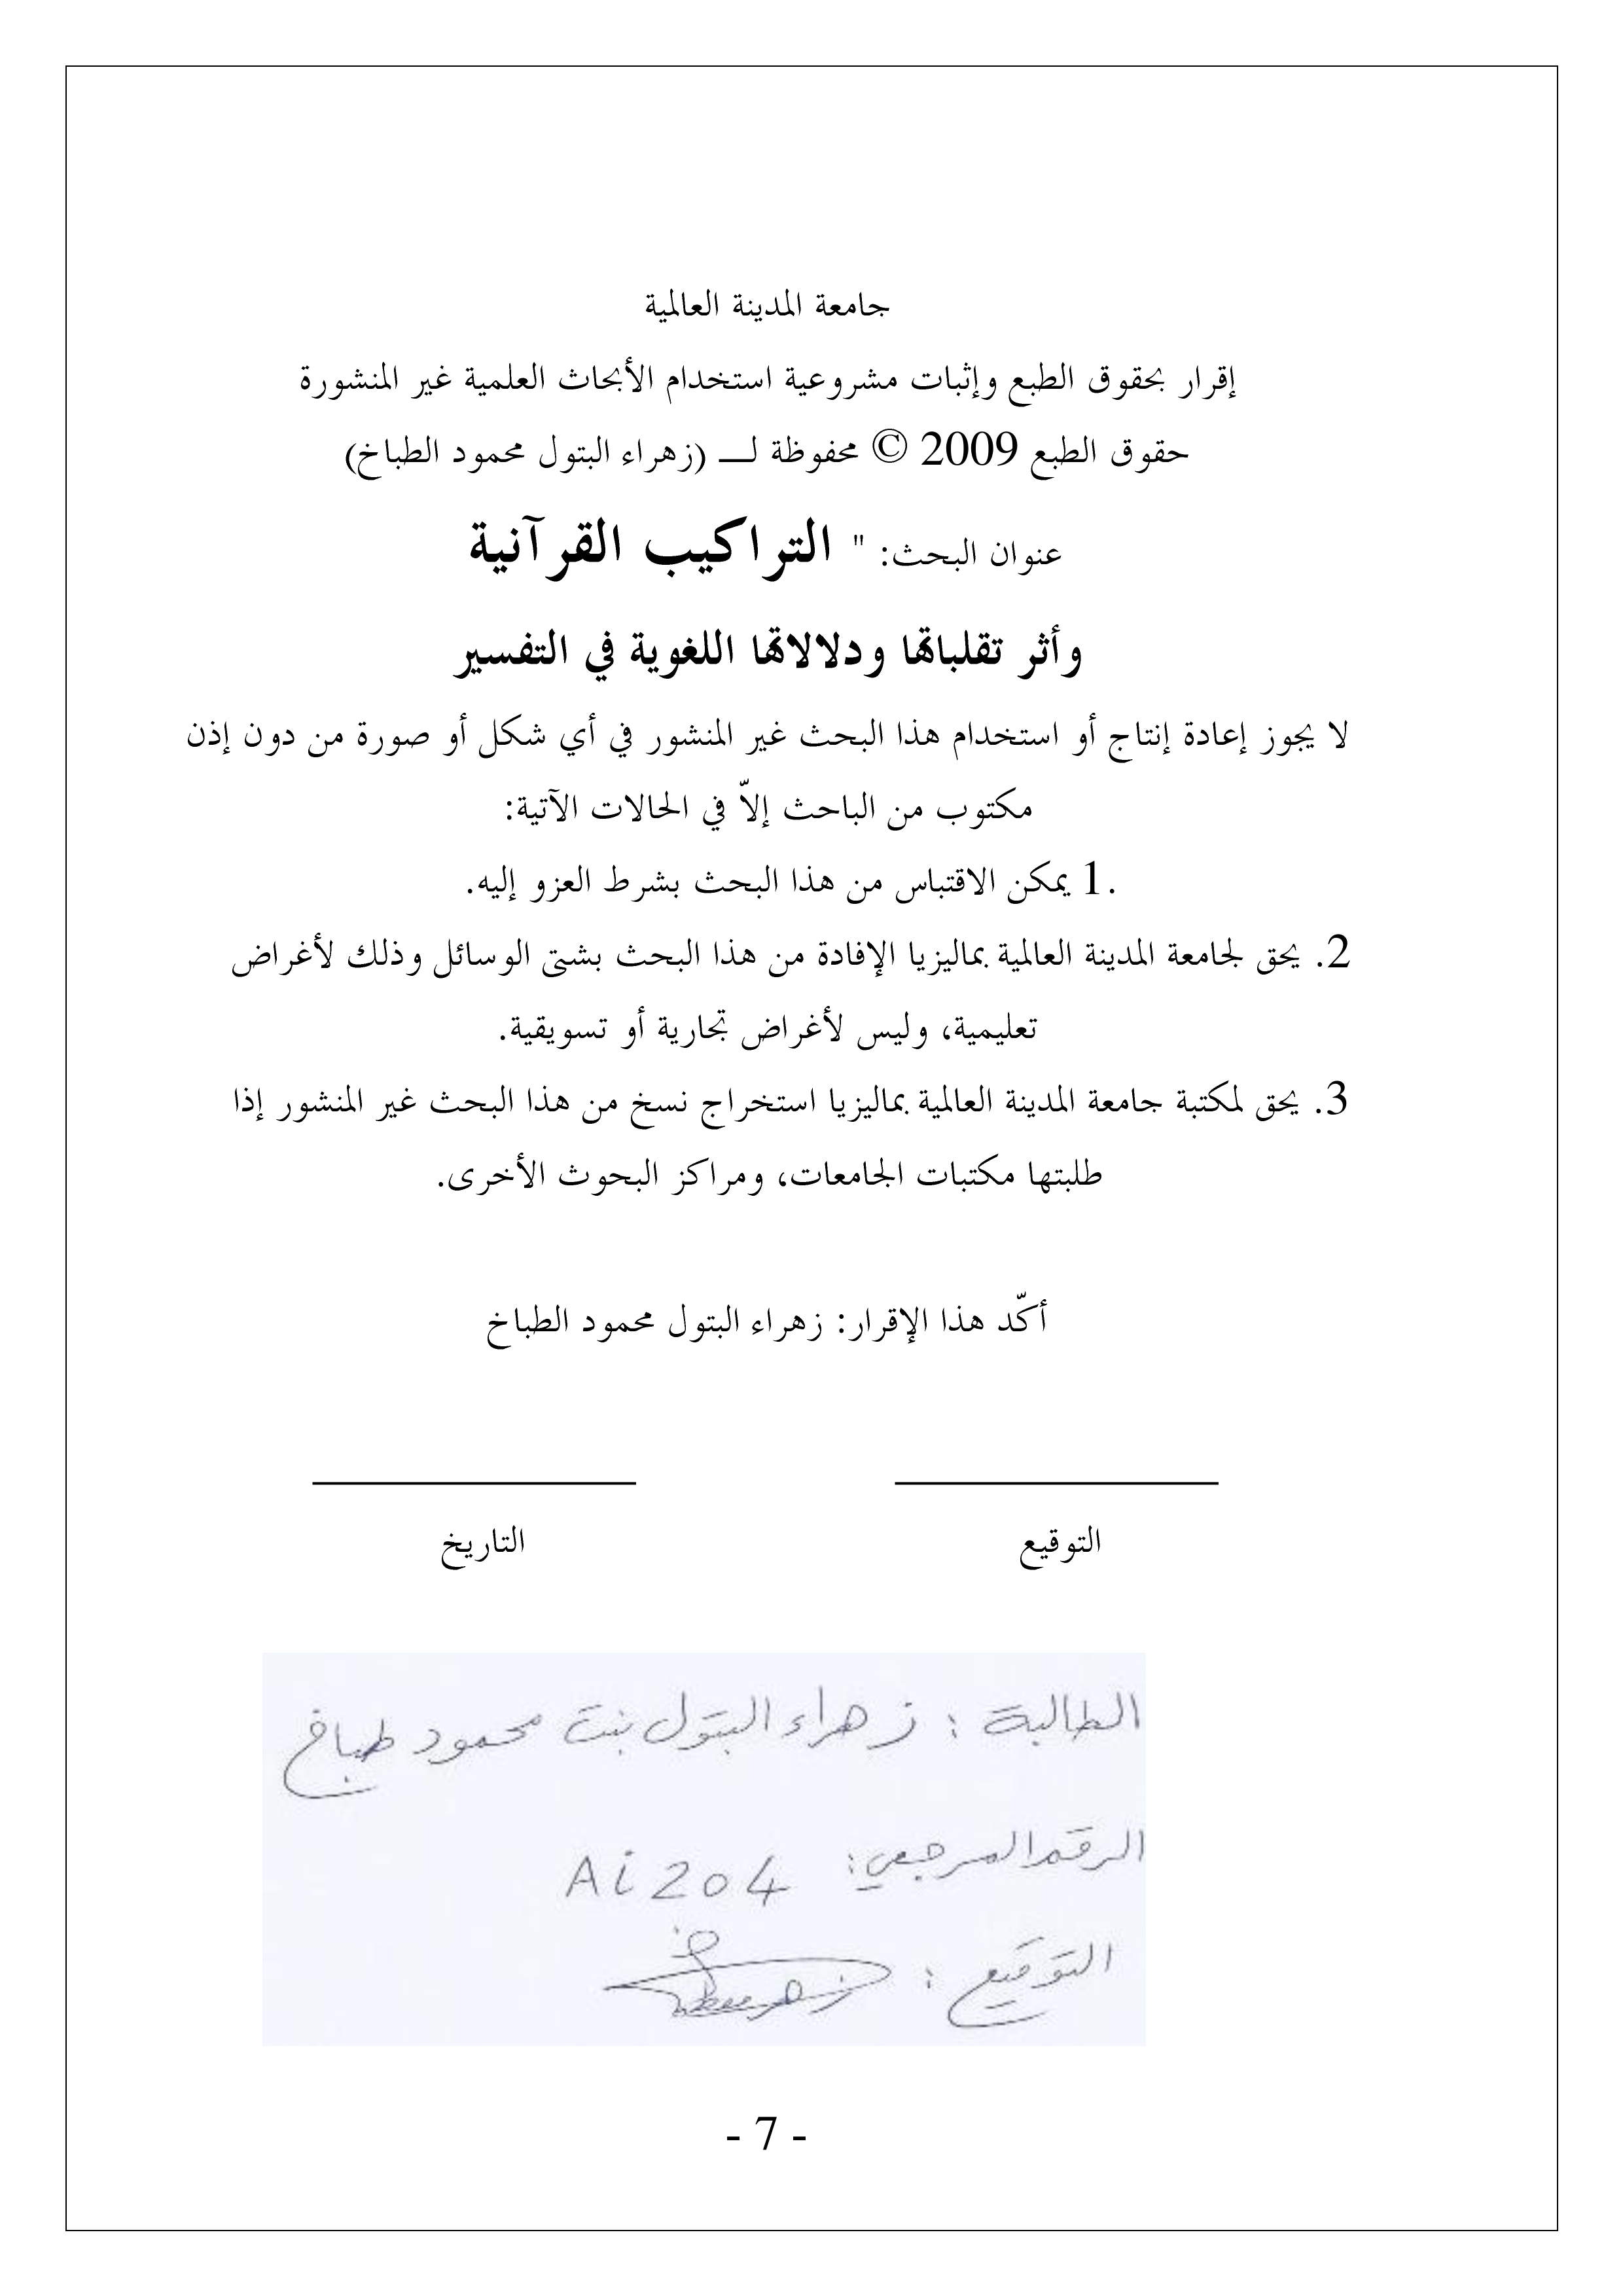 جامعة المدينة العالمية
إقرار بحقوق الطبع وإثبات مشروعية استخدام الأبحاث العلمية غير المنشورة
حقوق الطبع 2009 © محفوظة لـــ (زهراء البتول محمود الطباخ)
عنوان البحث: " التراكيب القرآنية
وأثر تقلباتها ودلالاتها اللغوية في التفسير
لا يجوز إعادة إنتاج أو استخدام هذا البحث غير المنشور في أي شكل أو صورة من دون إذن
مكتوب من الباحث إلاّ في الحالات الآتية:
.1 يمكن الاقتباس من هذا البحث بشرط العزو إليه.
2. يحق لجامعة المدينة العالمية بماليزيا الإفادة من هذا البحث بشتى الوسائل وذلك لأغراض
تعليمية، وليس لأغراض تجارية أو تسويقية.
3. يحق لمكتبة جامعة المدينة العالمية بماليزيا استخراج نسخ من هذا البحث غير المنشور إذا
طلبتها مكتبات الجامعات، ومراكز البحوث الأخرى.
أكّد هذا الإقرار: زهراء البتول محمود الطباخ
التوقيع التاريخ
الطالبة : زهراء البتول بنت محمود طباخ
الرقم المرجعي: Ai 204
التوقيع :
- 7 -